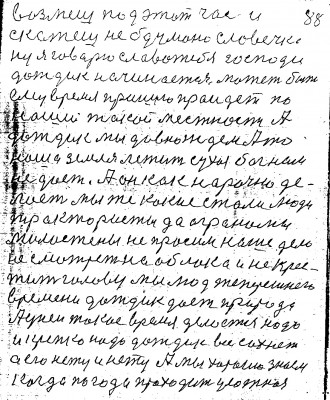 возмеш под этот час и 88
скажеш не обдумано словечка
ну я говарю слава тебя господи
дождик начинается может быть
ему время пришло праидет по
нашей такой местности А
дождик мы давно ждем А то
наша земля лежит сухая бог нам
не дает. А он как нарочно де-
лает мы же какие стали люди
трактористы да аграномы
милостены не просим наше дело
не смотреть на облака и не крес-
тить голову мы люд теперешнего
времени дождик дает природа
А у ней такое время делается надо
и крепко надо дождик все сохнет
а его нету и нету А мы харашо знаем
Когда погода праходит